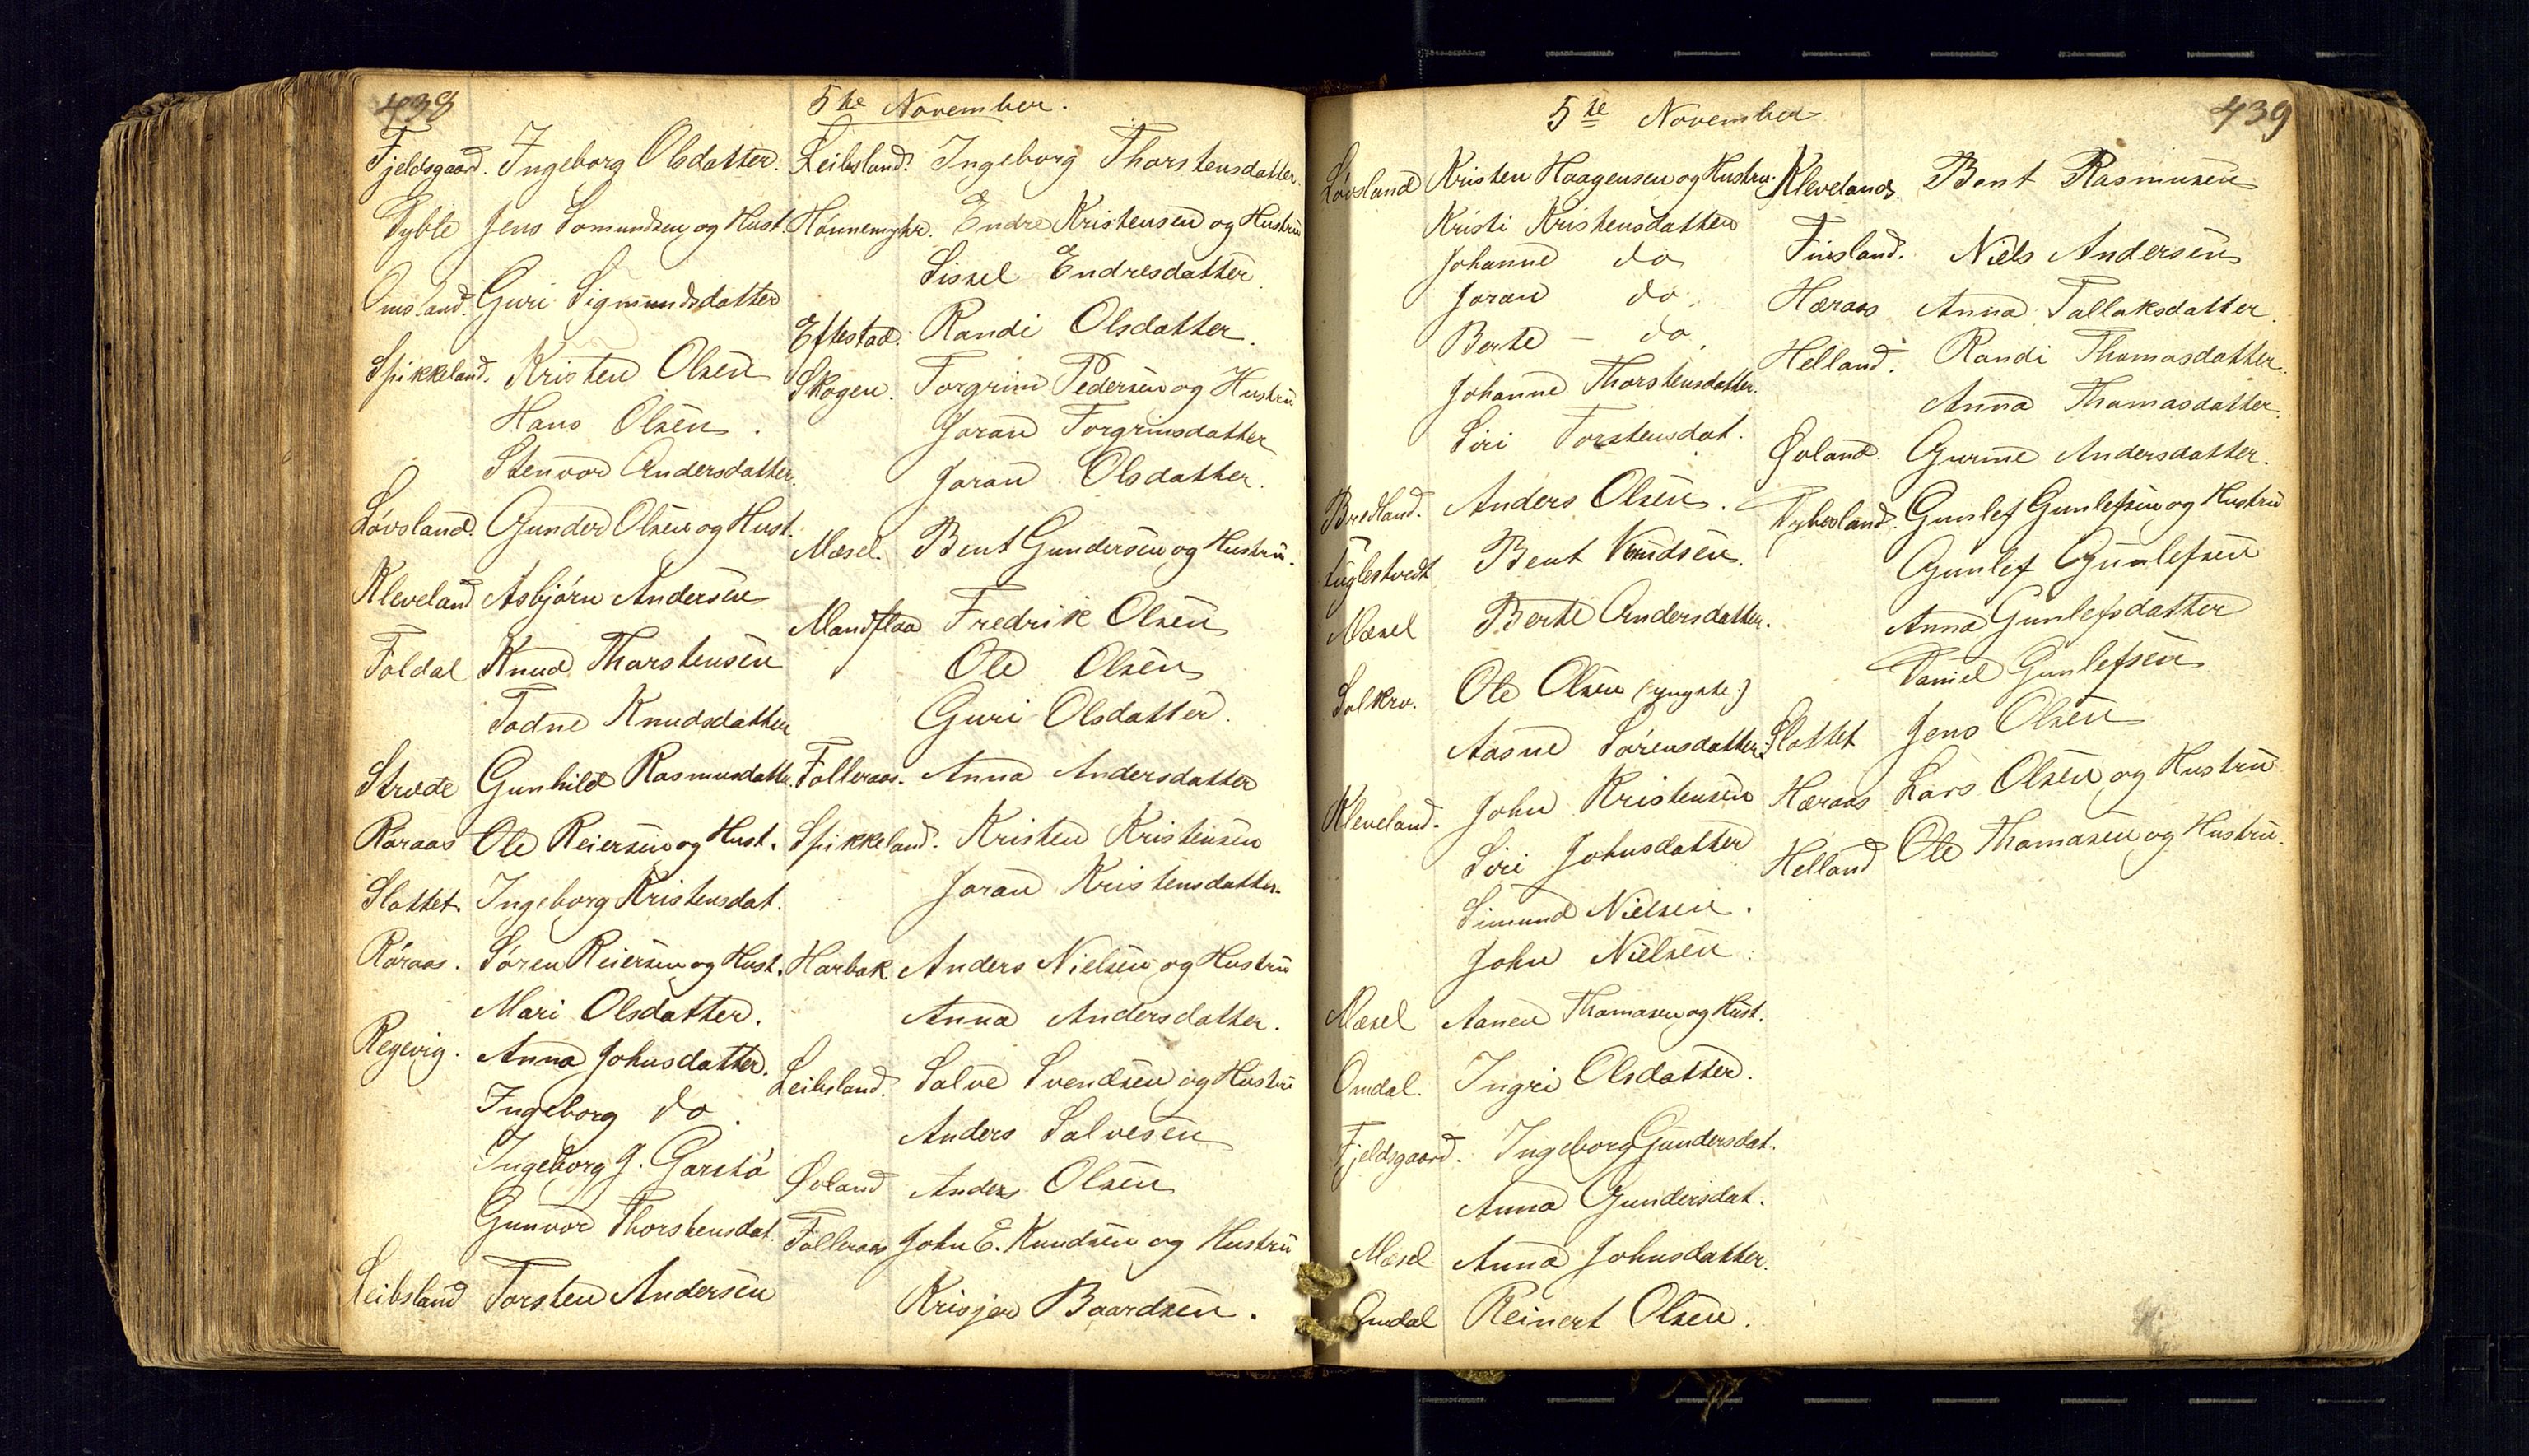 438
5te November.
Fjeldsgaard. Ingeborg Olsdatter.
Tyble Jens Somundsen og Hust.
Omsland. Guri Sigmundsdatter
Spikkeland. Kristen Olsen
Hans Olsen.
Stenvor Andersdatter.
Lóvsland. Gunder Olsen og Hust.
Kleveland Asbjørn Andersen
Foldal Knud Thorstensen
Todne Knudsdatter
Stræde Gunhild Rasmusdatter.
Róraas Ole Reiersen og Hust.
Slottet. Ingeborg Kristensdat.
Róraas. Søren Reiersen og Hust.
Mari Olsdatter.
Regevig. Anna Johnsdatter.
Ingeborg do.
Ingeborg J. Garstó
Gunvor Thorstensdat.
Leibsland Torsten Andersen
Leibsland. Ingeborg Thorstensdatter.
Hónnemyhr. Endre Kristensen og Hustru
Sissel Endresdatter.
Eftestad. Randi Olsdatter.
Skogen. Torgrim Pedersen og Hustru
Joran Torgrimsdatter
Joran Olsdatter.
Mæsel. Bent Gundersen og Hustru.
Mandflaa Fredrik Olsen
Ole Olsen
Guri Olsdatter.
Folleraas. Anna Andersdatter
Spikkeland. Kristen Kristensen
Joran Kristensdatter.
Harbak Anders Nielsen og Hustru
Anna Andersdatter.
Leibsland. Salve Svendsen og Hustru
Anders Salvesen
Øvland Anders Olsen
Folleraas John E. Knudsen og Hustru
Krisjen Baardsen.
5te November
439
Lóvsland Kristen Haagensen og Hustru.
Kristi Kristensdatter
Johanne do
Joran do.
Berte – do.
Johanne Thorstensdatter.
Siri Torstensdat.
Bredland. Anders Olsen.
Fuglestvedt Bent Knudsen.
Mæsel Berte Andersdatter.
Solkro. Ole Olsen (yngste.)
Aasne Sørensdatter.
Kleveland. John Kristensen
Siri Johnsdatter
Simund Nielsen.
John Nielsen.
Mæsel Aanen Thomasen og Hust.
Omdal. Ingri Olsdatter.
Fjeldsgaard. Ingeborg Gundersdat.
Anna Gundersdat.
Mæsel Anna Johnsdatter.
Omdal Reinert Olsen.
Kleveland. Bent Rasmusen
Finsland. Niels Andersen
Hæraas Anna Tallaksdatter.
Helland. Randi Thomasdatter.
Anna Thomasdatter.
Øvland. Gurine Andersdatter.
Dybesland. Gunlef Gunlefsen og Hustru
Gunlef Gunlefsen
Anna Gunlefsdatter
Daniel Gunlefsen
Slottet Jens Olsen
Hæraas Lars Olsen og Hustru
Helland Ole Thomasen og Hustru.